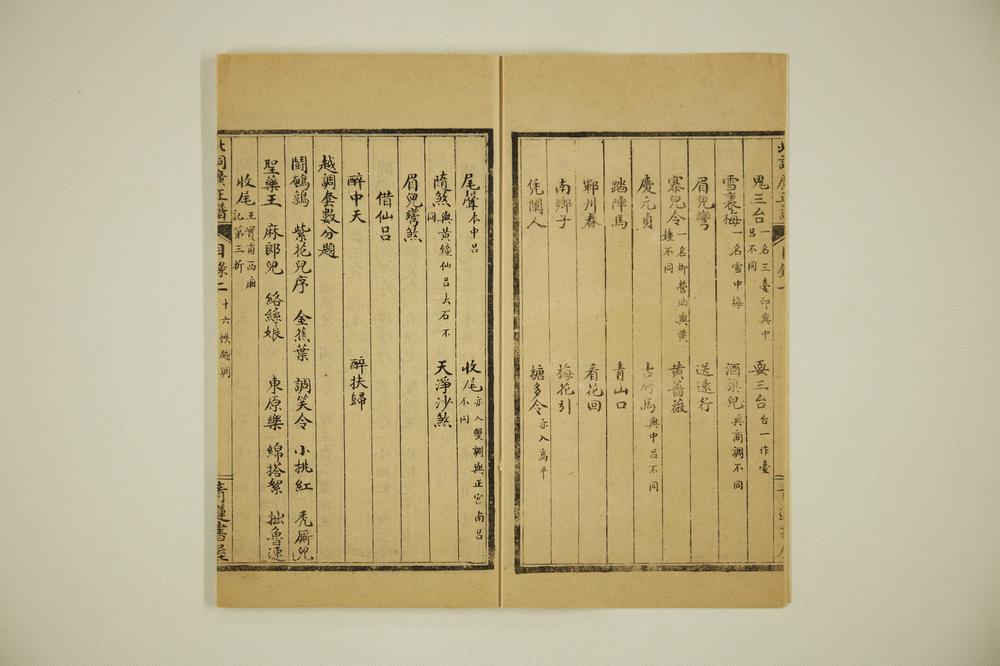 鬼三台一名三臺印與中呂不同 耍三台台一作臺
雪裏梅一名雪中梅 酒旗兒與商調不同
眉兒彎 送遠行
寨兒令一名柳營曲與黃鐘不同 黃薔薇
慶元貞 古竹馬與中呂不同
踏陣馬 青山口
鄆州春 看花回
南鄉子 梅花引
凭闌人 糖多令亦入高平
尾聲本中呂 收尾亦入雙調與正宮南呂不同
隨煞與黃鐘仙呂大石不同 天淨沙煞
眉兒彎煞
借仙呂
醉中天 醉扶歸
越調套數分題
鬬鵪鶉 紫花兒序 金蕉葉 調笑令 小桃紅 禿厮兒
聖藥王 麻郎兒 絡絲娘 東原樂 綿搭絮 拙魯速
收尾王實甫西廂記第三折
北詞廣正譜 目錄二 十六帙越調 青蓮書屋